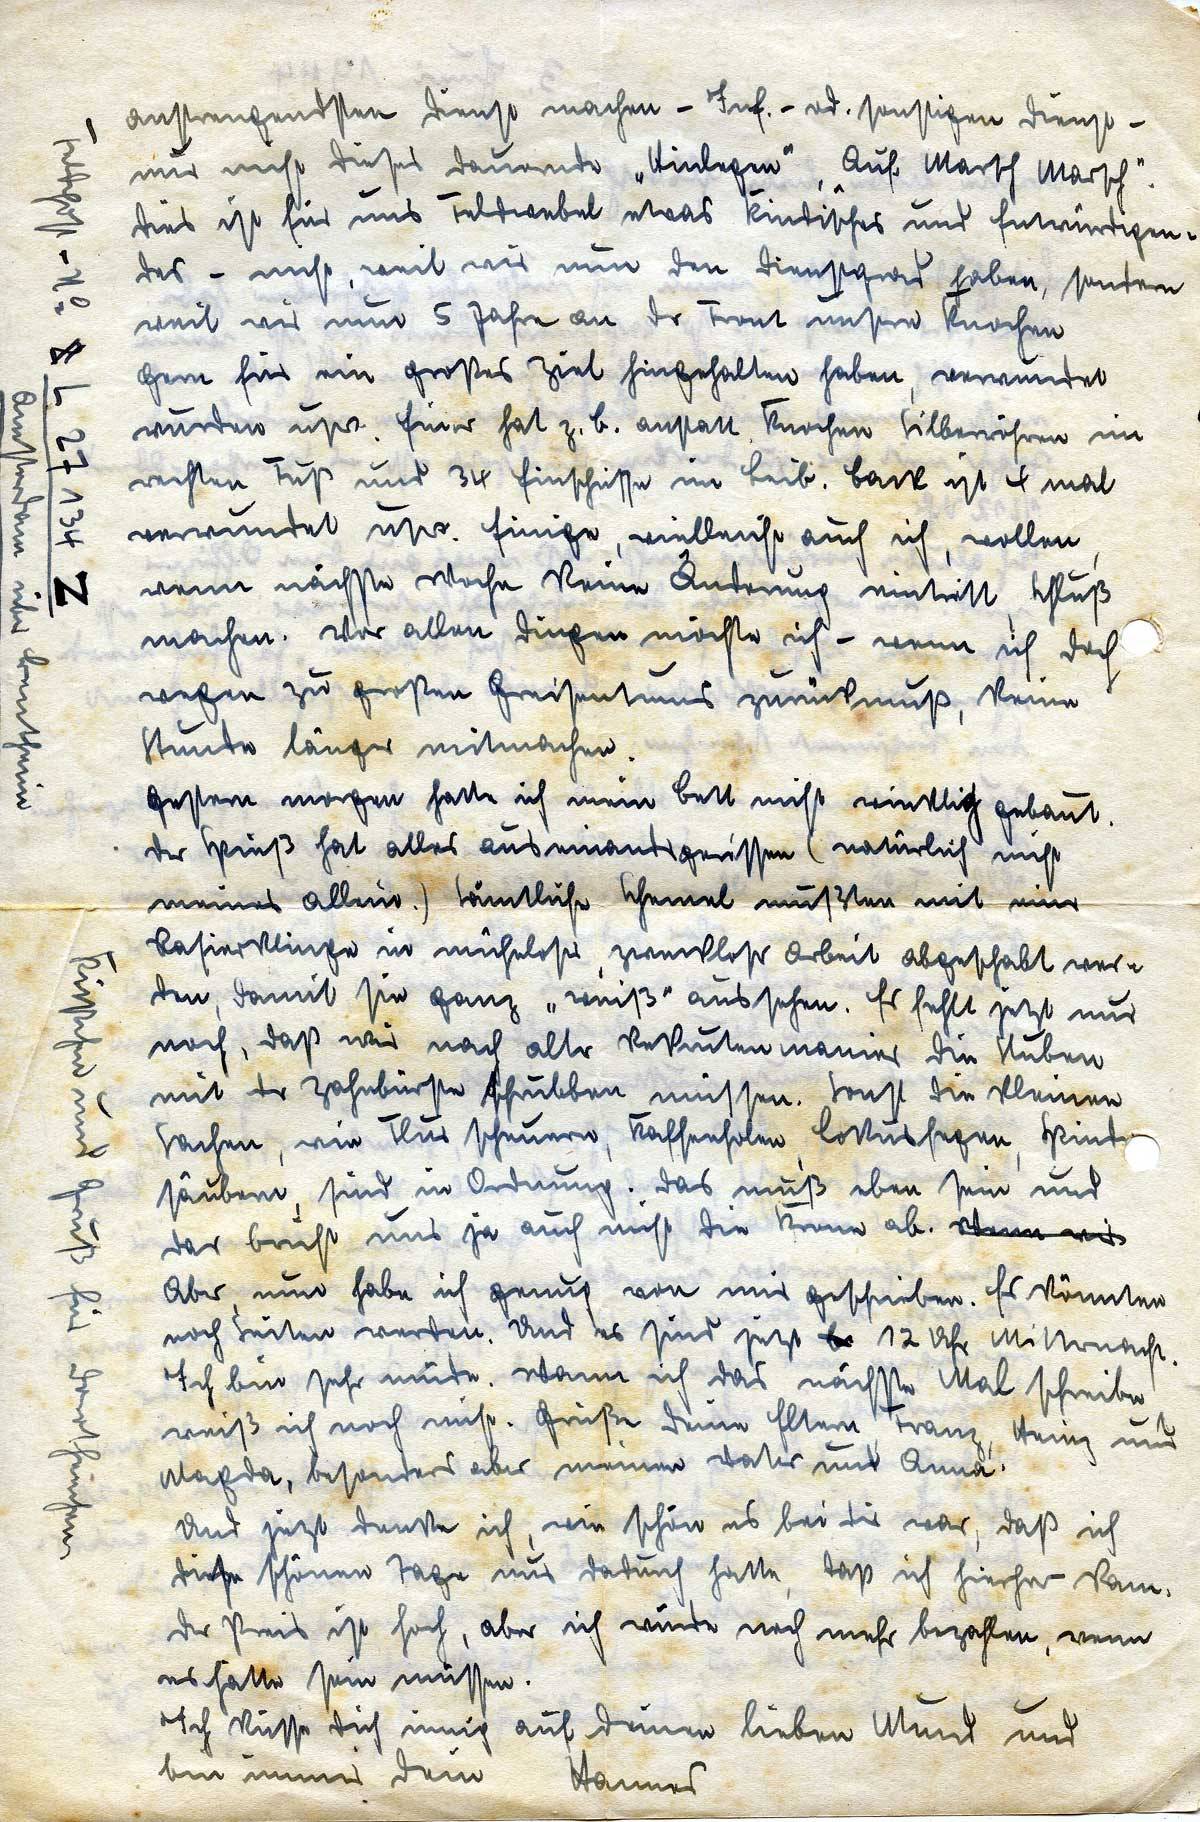 anstrengendsten Dienst machen – Inf. – od. sonstigen Dienst –
nur nicht dieses dauernde „Hinlegen“, „Auf Marsch Marsch“.
Dies ist für uns Feldwebel etwas Kindisches und Entwürdigen-
des – nicht, weil wir nun den Dienstgrad haben, sondern
weil wir nun 5 Jahre an der Front unsere Knochen
gern für ein großes Ziel hingehalten haben, verwundet
wurden usw. Einer hat z.B. anstatt Knochen Silberröhren im
rechten Fuß und 34 Einschüsse im Leib. Back ist 4 mal
verwundet usw. Einige, vielleicht auch ich, wollen,
wenn nächste Woche keine Änderung eintritt, Schluß
machen. Vor allen Dingen möchte ich – wenn ich doch
wegen zu großen Greisentums zurückmuß, keine
Stunde länger mitmachen.
Gestern morgen hatte ich mein Bett nicht winklig gebaut.
Der Spieß hat alles auseinandergerissen (natürlich nicht
meines allein.) Sämtliche Schemel mußten mit einer
Rasierklinge in müheloser, zweckloser Arbeit abgeschabt wer-
den, damit sie ganz „weiß“ aussehen. Es fehlt jetzt nur
noch, daß wir nach alter Rekrutenmanier die Stuben
mit der Zahnbürste schrubben müssen. Sonst die kleinen
Sachen, wie Flur scheuern, Kaffeeholen, Lokusfegen, Spinde
säubern, sind in Ordnung. Das muß eben sein und
da bricht uns ja auch nicht die Krone ab. Wenn wir
Aber, nun habe ich genug von mir geschrieben. Es könnten
noch Seiten werden. Und es sind jetzt 12 Uhr Mitternacht.
Ich bin sehr müde. Wann ich das nächste Mal schreibe
weiß ich noch nicht. Grüße Deine Eltern, Franz, Heinz und
Magda, besonders aber meinen Vater und Anna.
Und jetzt denke ich, wie schön es bei Dir war, daß ich
diese schönen Tage nur dadurch hatte, daß ich hierher kam.
Der Preis ist hoch, aber ich würde noch mehr bezahlen, wenn
es hätte sein müssen.
Ich küsse Dich innig auf Deinen lieben Mund und
bin immer Dein Hannes
Feldpost-No L 27134 Z
Amsterdam über Bentheim
Küßchen und Gruß für Dorthinchen